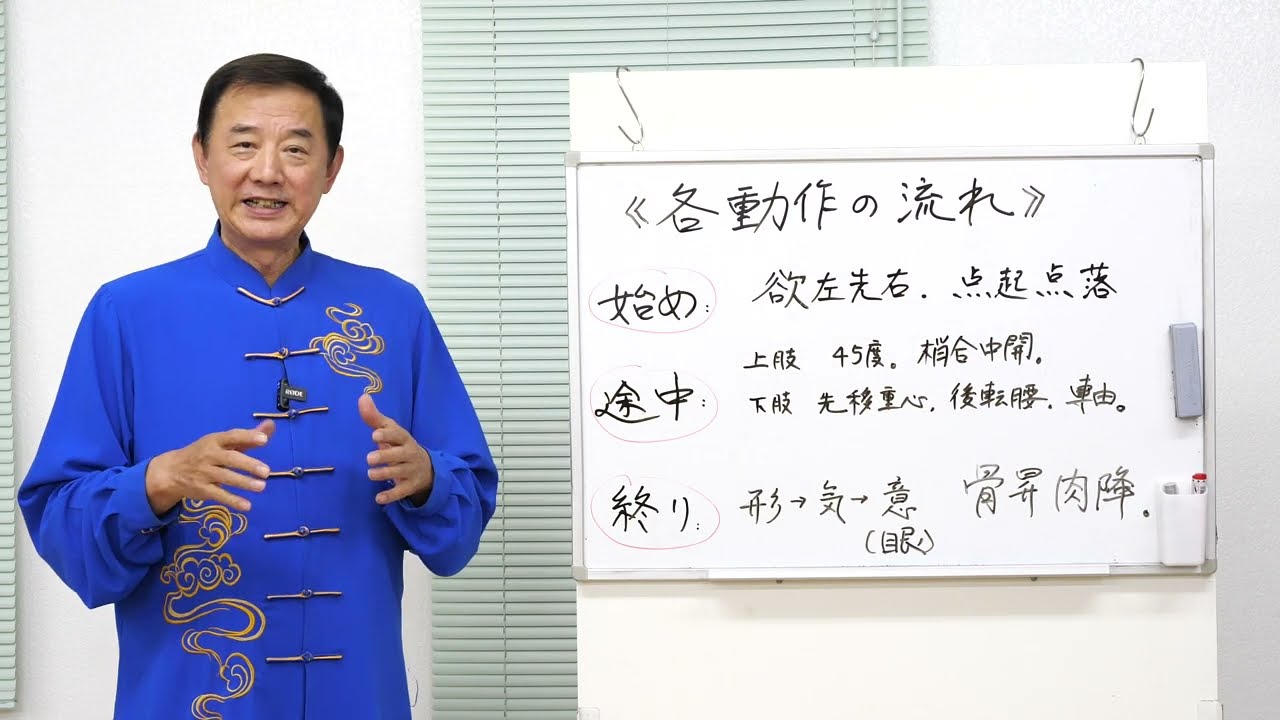 《各動作の流れ》
始め: 欲左先右. 点起点落
途中: 上肢 45度。梢合中開。
下肢 先移重心, 後転腰, 車由。
終り: 形→気→意 骨昇肉降。
(目艮)
RODE